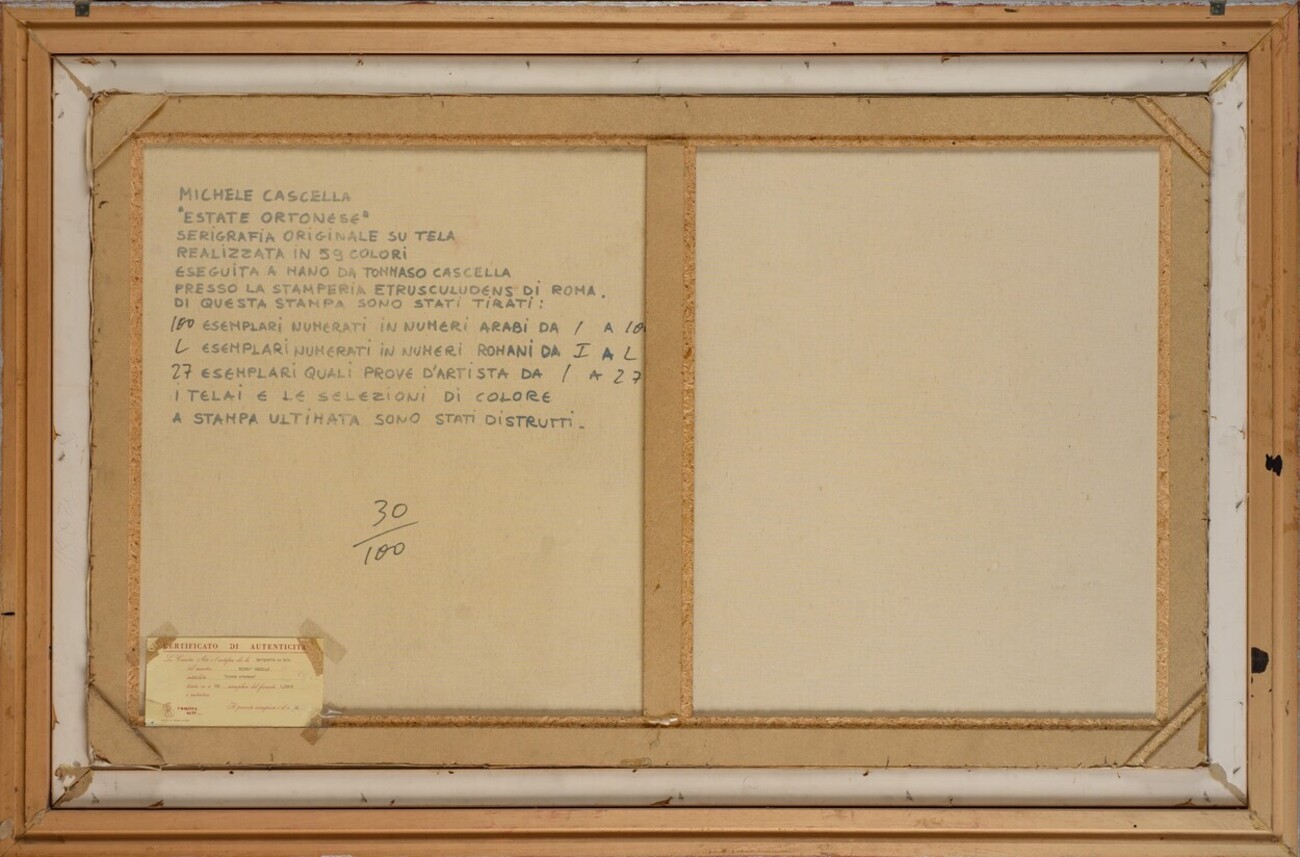 MICHELE CASCELLA
"ESTATE ORTONESE"
SERIGRAFIA ORIGINALE SU TELA
REALIZZATA IN 59 COLORI
ESEGUITA A MANO DA TOMMASO CASCELLA
PRESSO LA STAMPERIA ETRUSCULUDENS DI ROMA.
DI QUESTA STAMPA SONO STATI TIRATI:
100 ESEMPLARI NUMERATI IN NUMERI ARABI DA 1 A 10
L ESEMPLARI NUMERATI IN NUMERI ROMANI DA I A L
27 ESEMPLARI QUALI PROVE D'ARTISTA DA 1 A 27
I TELAI E LE SELEZIONI DI COLORE
A STAMPA ULTIMATA SONO STATI DISTRUTTI.
30
100
CERTIFICATO DI AUTENTICITÀ